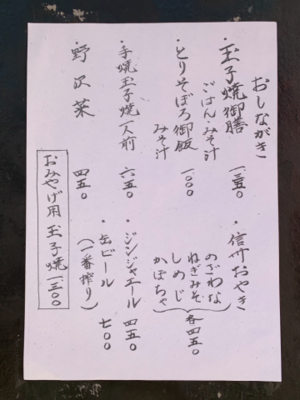 おしながき
・玉子焼御膳 一二五〇
ごはん、みそ汁
・とりそぼろ御飯 一〇〇〇
みそ汁
・手焼玉子焼一人前 六五〇
・野沢菜 四五〇
・信州おやき
のざわな
ねぎみそ
しめじ
かぼちゃ
各四五〇
・ジンジャエール 四五〇
・缶ビール 七〇〇
(一番搾り)
おみやげ用玉子焼一三〇〇